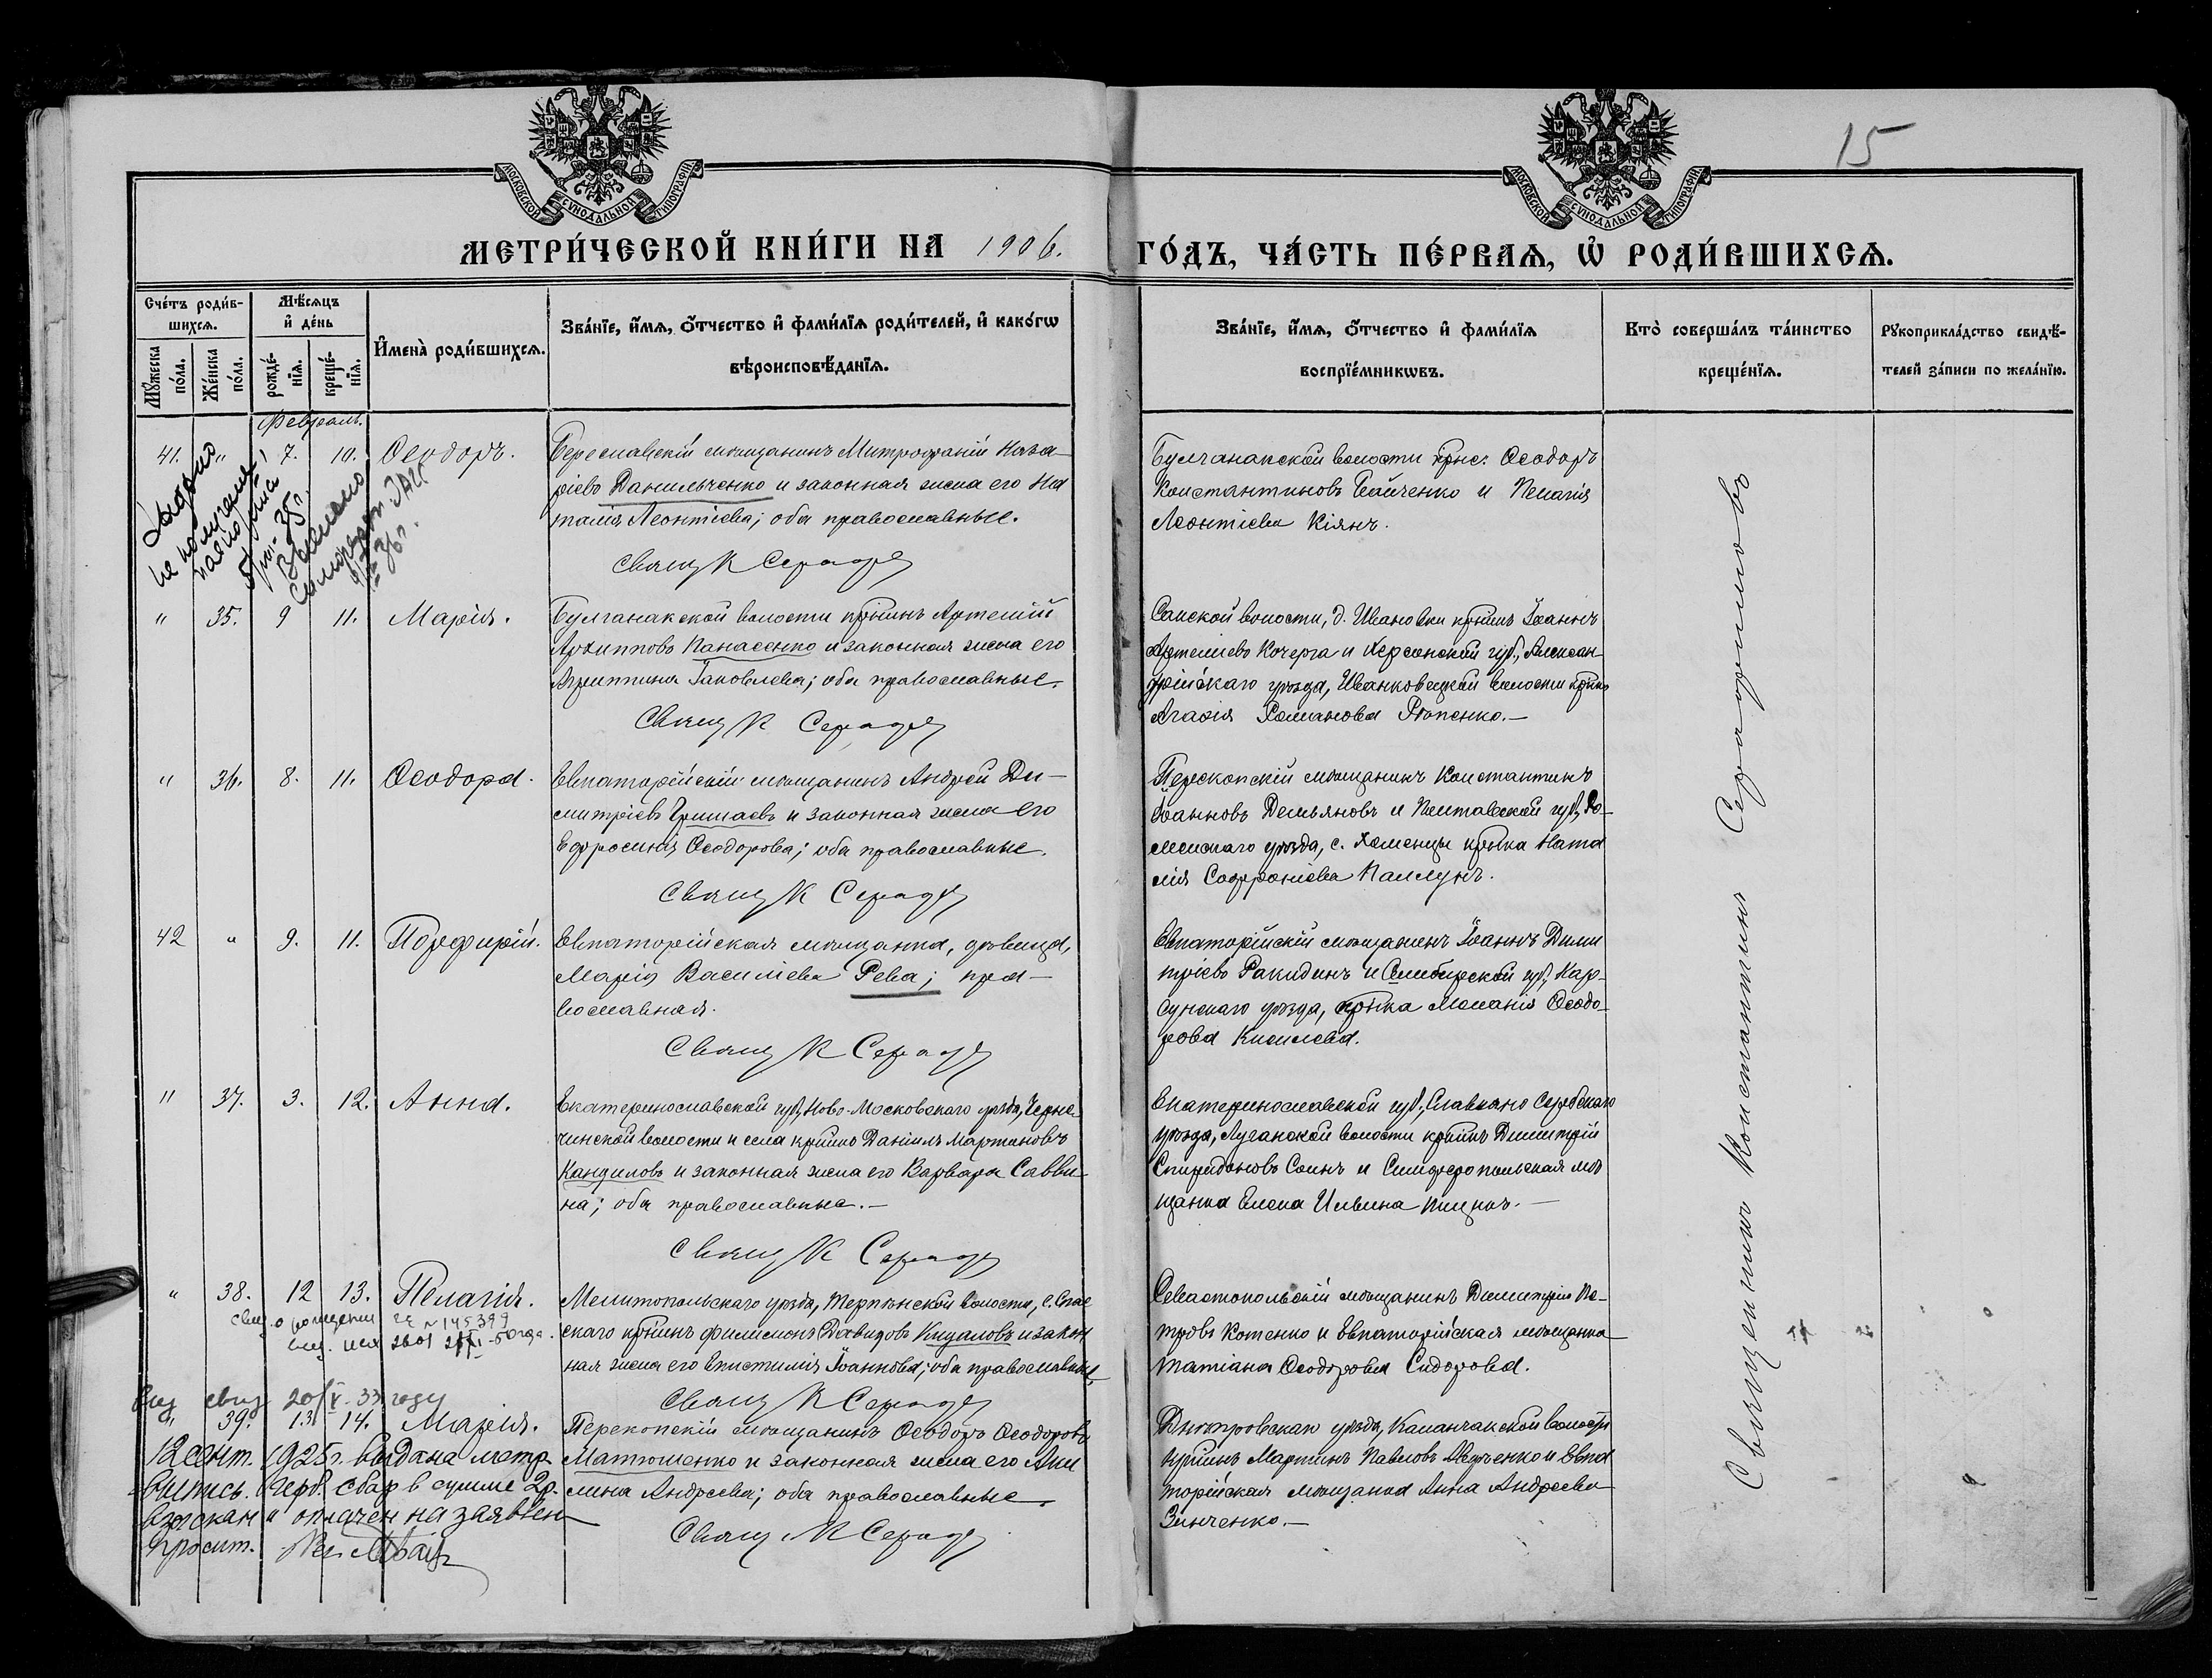 15
МОСКОВСКОЙ СѴНОДАЛЬНОЙ ТИПОГРАФІИ
МОСКОВСКОЙ СѴНОДАЛЬНОЙ ТИПОГРАФІИ
МЕТРИ́ЧЕСКОЙ КНИ́ГИ НА 1906. ГО́ДЪ, ЧА́СТЬ ПЕ́РВАѦ, Ѡ҆ РОДИ́ВШИХСѦ.
Сче́тъ роди́в-
шихсѧ.
Мꙋ́жеска
по́ла.
Же́нска
по́ла.
Мѣ́сѧцъ
и҆ де́нь
рожде́-
нїѧ.
креще́-
нїѧ.
И҆мена̀ роди́вшихсѧ.
Зва́нїе, и҆́мѧ, ѻ҆́тчество и҆ фами́лїѧ роди́телей, и҆ како́гѡ
вѣроисповѣ́данїѧ.
Зва́нїе, и҆́мѧ, ѻ҆́тчество и҆ фами́лїѧ
воспрїе́мникѡвъ.
Кто̀ соверша́лъ та́инство
креще́нїѧ.
Рꙋкоприкла́дство свидѣ́-
телей за́писи по жела́нїю.
Февраль.
41. " 7. 10. Ѳеодоръ.
Береславскій мѣщанинъ Митрофаній Наза-
ріевъ Данильченко и законная жена его На
талія Леонтіева; оба православные.
Свящ К Серафи
Булганакской волости крес. Ѳеодоръ
Константиновъ Бойченко и Пелагія
Леонтіева Кіянъ.
" 35. 9 11. Марія.
Булганакской волости кр̃нинъ Артемій
Архипповъ Панасенко и законная жена его
Агриппина Іаковлева; оба православные.
Свящ К Серафи
Сакской волости, д. Ивановки кр̃нинъ Іоаннъ
Артеміевъ Кочерга и Херсонской губ., Алексан-
дрійскаго уѣзда, Иванковецкой волости кр̃нка
Агафія Романова Ропенко.—
" 36. 8. 11. Ѳеодора.
Евпаторійскій мѣщанинъ Андрей Ди-
митріевъ Гришаевъ и законная жена его
Ефросинія Ѳеодорова; оба православные.
Свящ К Серафи
Перекопскій мѣщанинъ Константинъ
Іоанновъ Демьяновъ и Полтавской губ., Ро-
менскаго уѣзда, с. Хоменцы кр̃нка Ната
лія Софроніева
42 " 9. 11. Порфирій.
Евпаторійская мѣщанка, дѣвица,
Марія Василіева Рева; пра-
вославная.
Свящ К Серафи
Евпаторійскій мѣщанинъ Іоаннъ Дими
тріевъ Ракидинъ и Симбирской губ., Кар-
сунскаго уѣзда, кр̃нка Меланія Ѳеодо-
рова Киселева.
" 37. 3. 12. Анна.
Екатеринославской губ., Ново-Московскаго уѣзда, Черне-
чинской волости и села кр̃нинъ Даніилъ Мартиновъ
Кандиловъ и законная жена его Варвара Савви-
на; оба православные.—
Свящ К Серафи
Екатеринославской губ., Славяно Сербскаго
уѣзда, Луганской волости кр̃нинъ Димитрій
Спиридоновъ Соинъ и Симферопольская мѣ
щанка Елена Ильина
" 38. 12 13. Пелагія.
свид. о рождении № 145399
Мелитопольскаго уѣзда, Терпѣнской волости, с. Спас
скаго кр̃нинъ Филимонъ Давидовъ Кидаловъ и закон
ная жена его Епистимія Іоаннова; оба православные,
Свящ К Серафи
Севастопольскій мѣщанинъ Димитрій Пе-
тровъ Котенко и Евпаторійская мѣщанка
Татіана Ѳеодорова Сидорова.
" 39. 13. 14. Марія.
Перекопскій мѣщанинъ Ѳеодоръ Ѳеодоровъ
Матюшенко и законная жена его Аки
лина Андреева; оба православные.
Свящ К Серафи
Днѣпровскаго уѣзда, Каланчакской волости
кр̃нинъ Мартинъ Павловъ Медченко и Евпа
торійская мѣщанка Анна Андреева
Зинченко.—
12 сент. 1925 г. выдана метр.
выпись. Герб. сбор в сумме 2 р.
взыскан и оплачен на заявлен
просит.
Священникъ Константинъ Серафимовъ